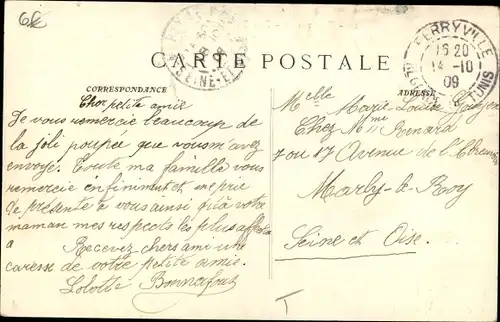 68
FERRYVILLE
16 20
14 -10
09
TUNIS
SEINE-ET-
CARTE POSTALE
CORRESPONDANCE
ADRESSE
Cher petite amie
Je vous remercie beaucoup de
la joli poupee que vous m'avez
envoye. Toute ma famille vous
remercie enfiniment et me prie
de presente a vous ainsi qu'à votre
maman mes respects les plus
a
Recevez chers ami une
caresse de votre petite amie.
Lolotte Bonnafout
Melle Marie Louise
Chez Mme Renard
7 ou 17 Avenue de l'
Marly-le-Roy
Seine et Oise.
T